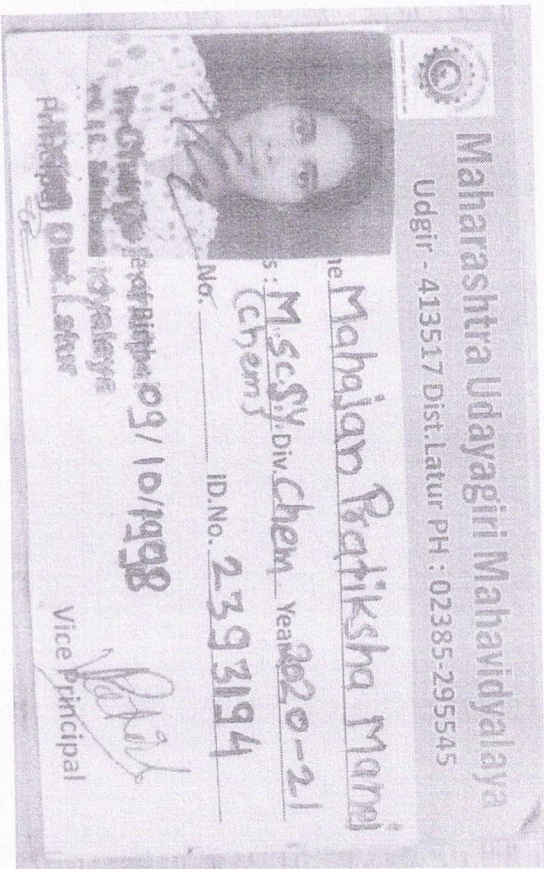 Maharashtra Udayagiri Mahavidyalaya
Udgir - 413517 Dist.Latur PH : 02385-295545
Mahajan Pratiksha Manoj
M.Sc.SY. Div. Chem Year 2020-21
(Chem)
No. ID.No. 2393194
of Birth: 09/10/1998
Principal Dist. Latur
Vice Principal